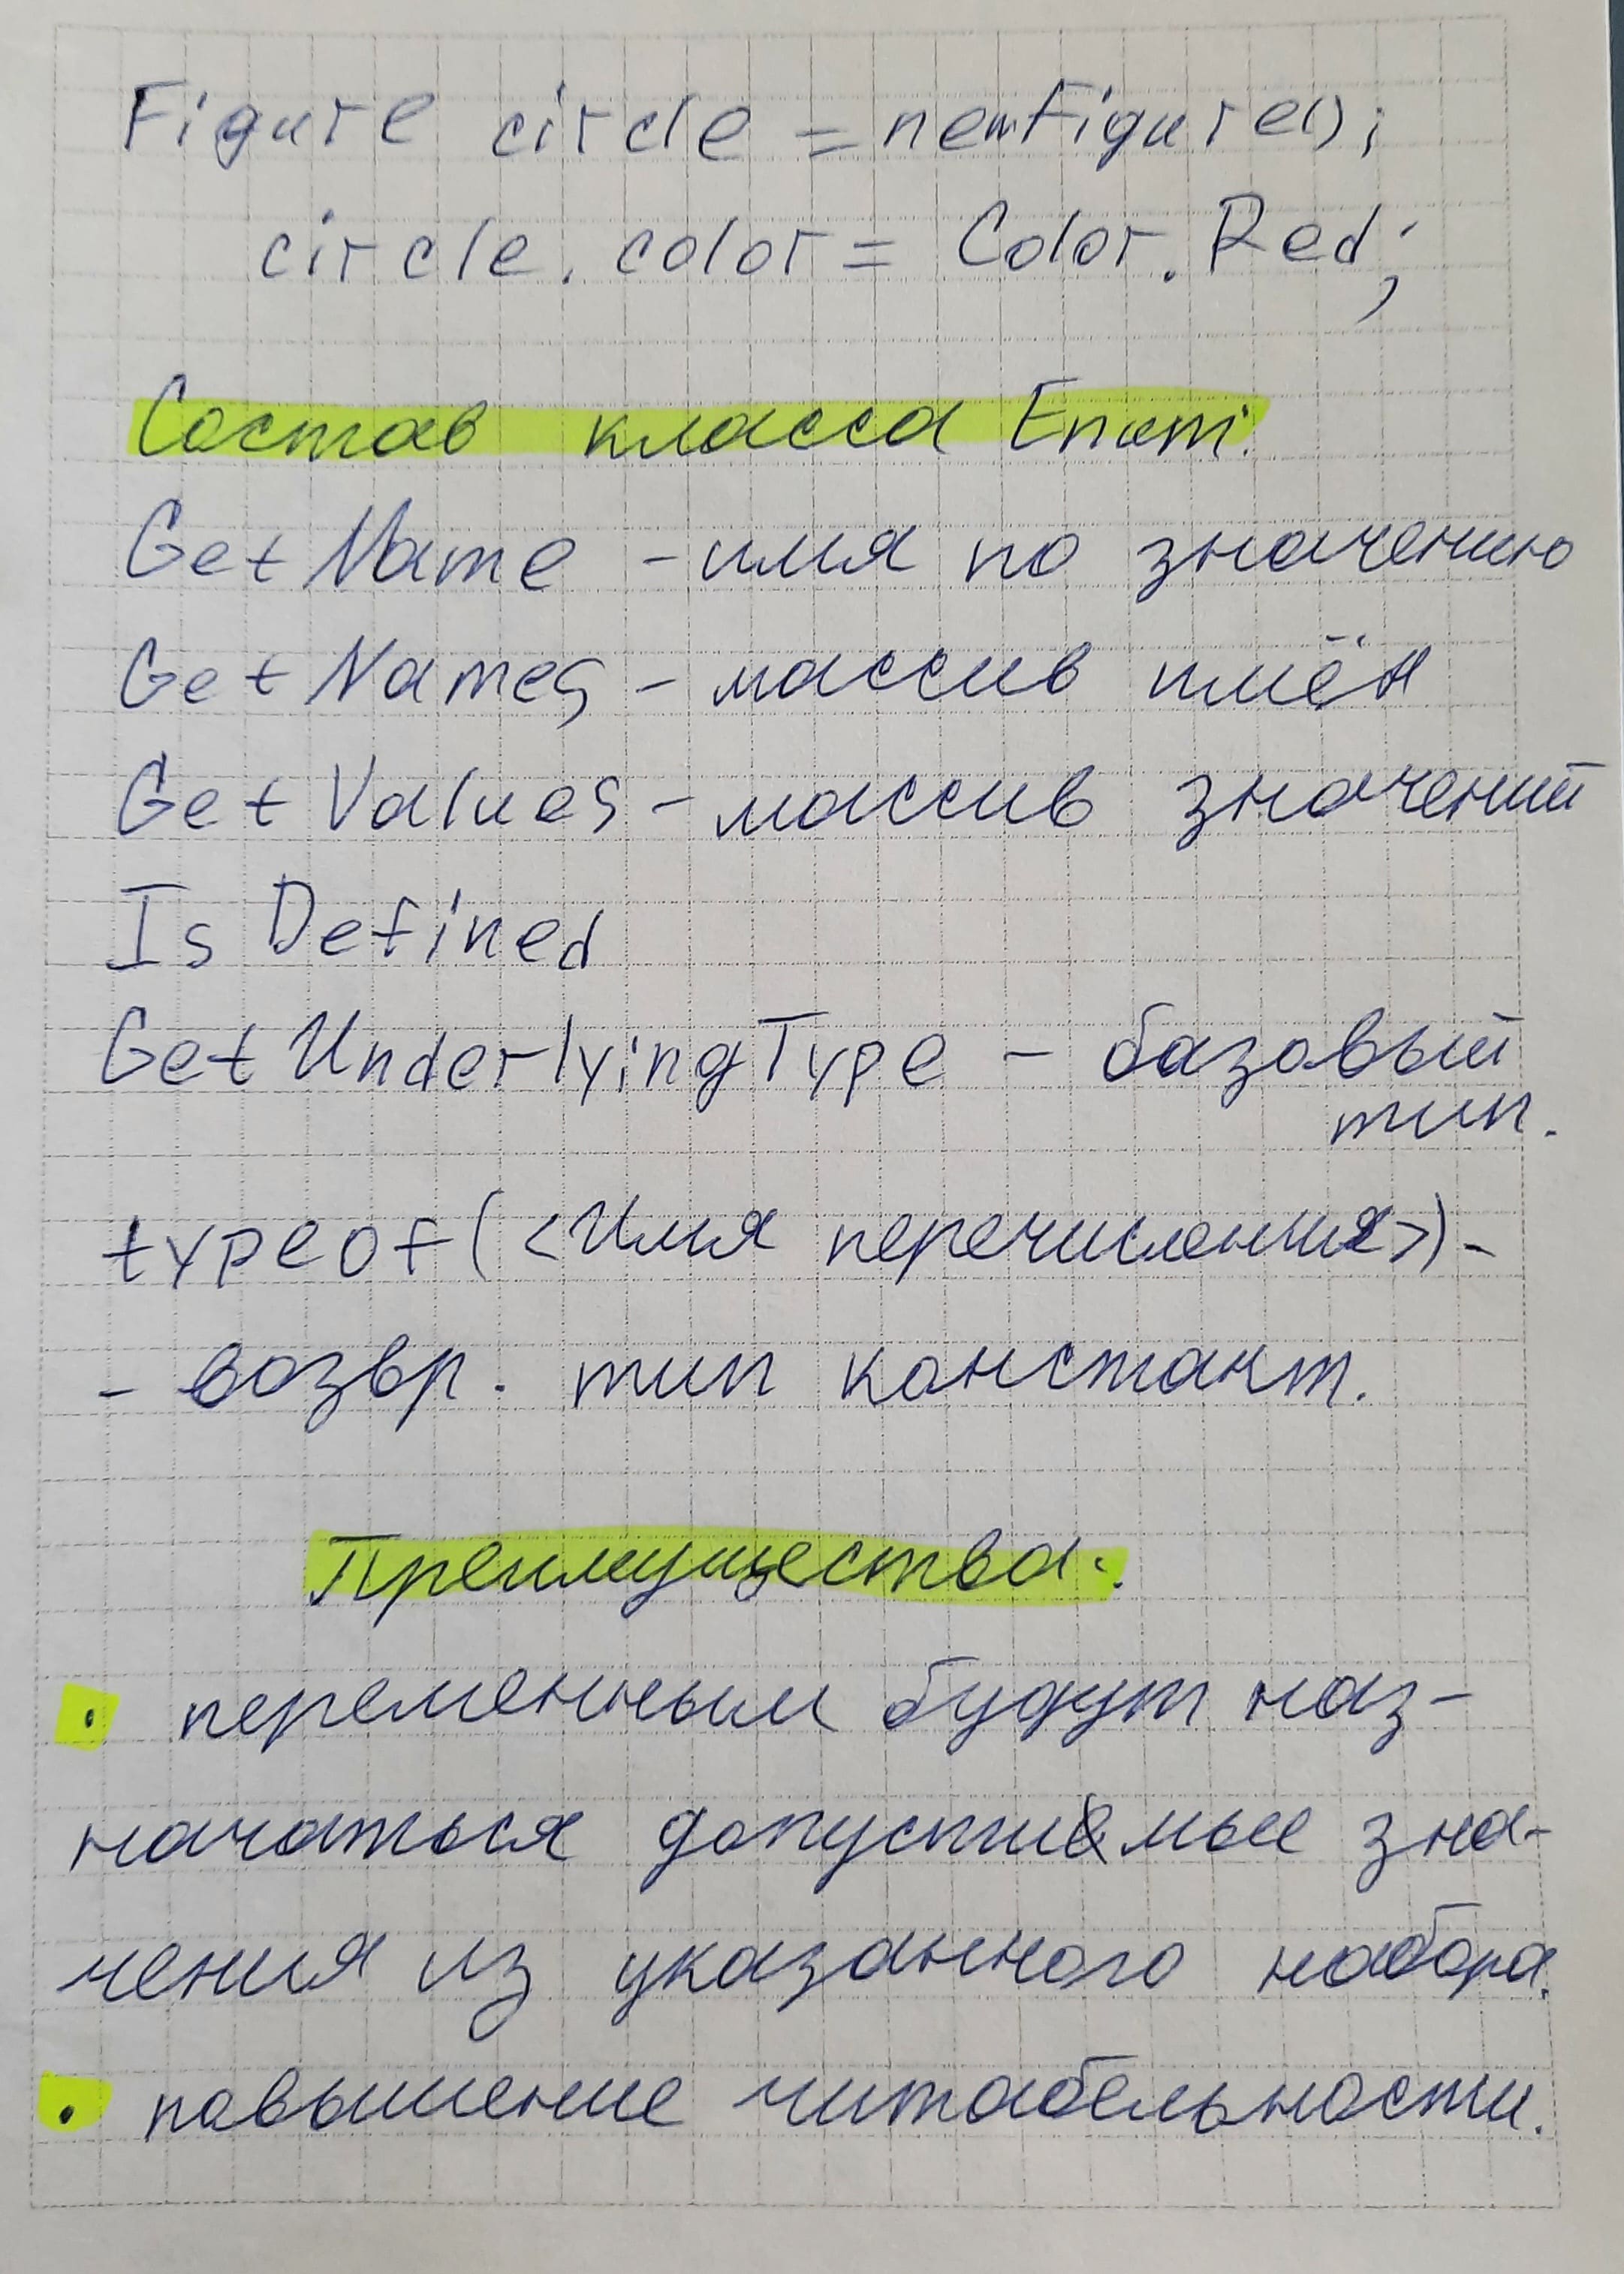 Figure circle = new Figure();
circle.color = Color.Red;
Состав класса Enum:
GetName - имя по значению
GetNames - массив имён
GetValues - массив значений
IsDefined
GetUnderlyingType - базовый
тип.
typeof(<Имя перечисления>) -
- возвр. тип констант.
Преимущества:
• переменным будут наз-
начаться допустимые зна-
чения из указанного набора.
• повышение читабельности.